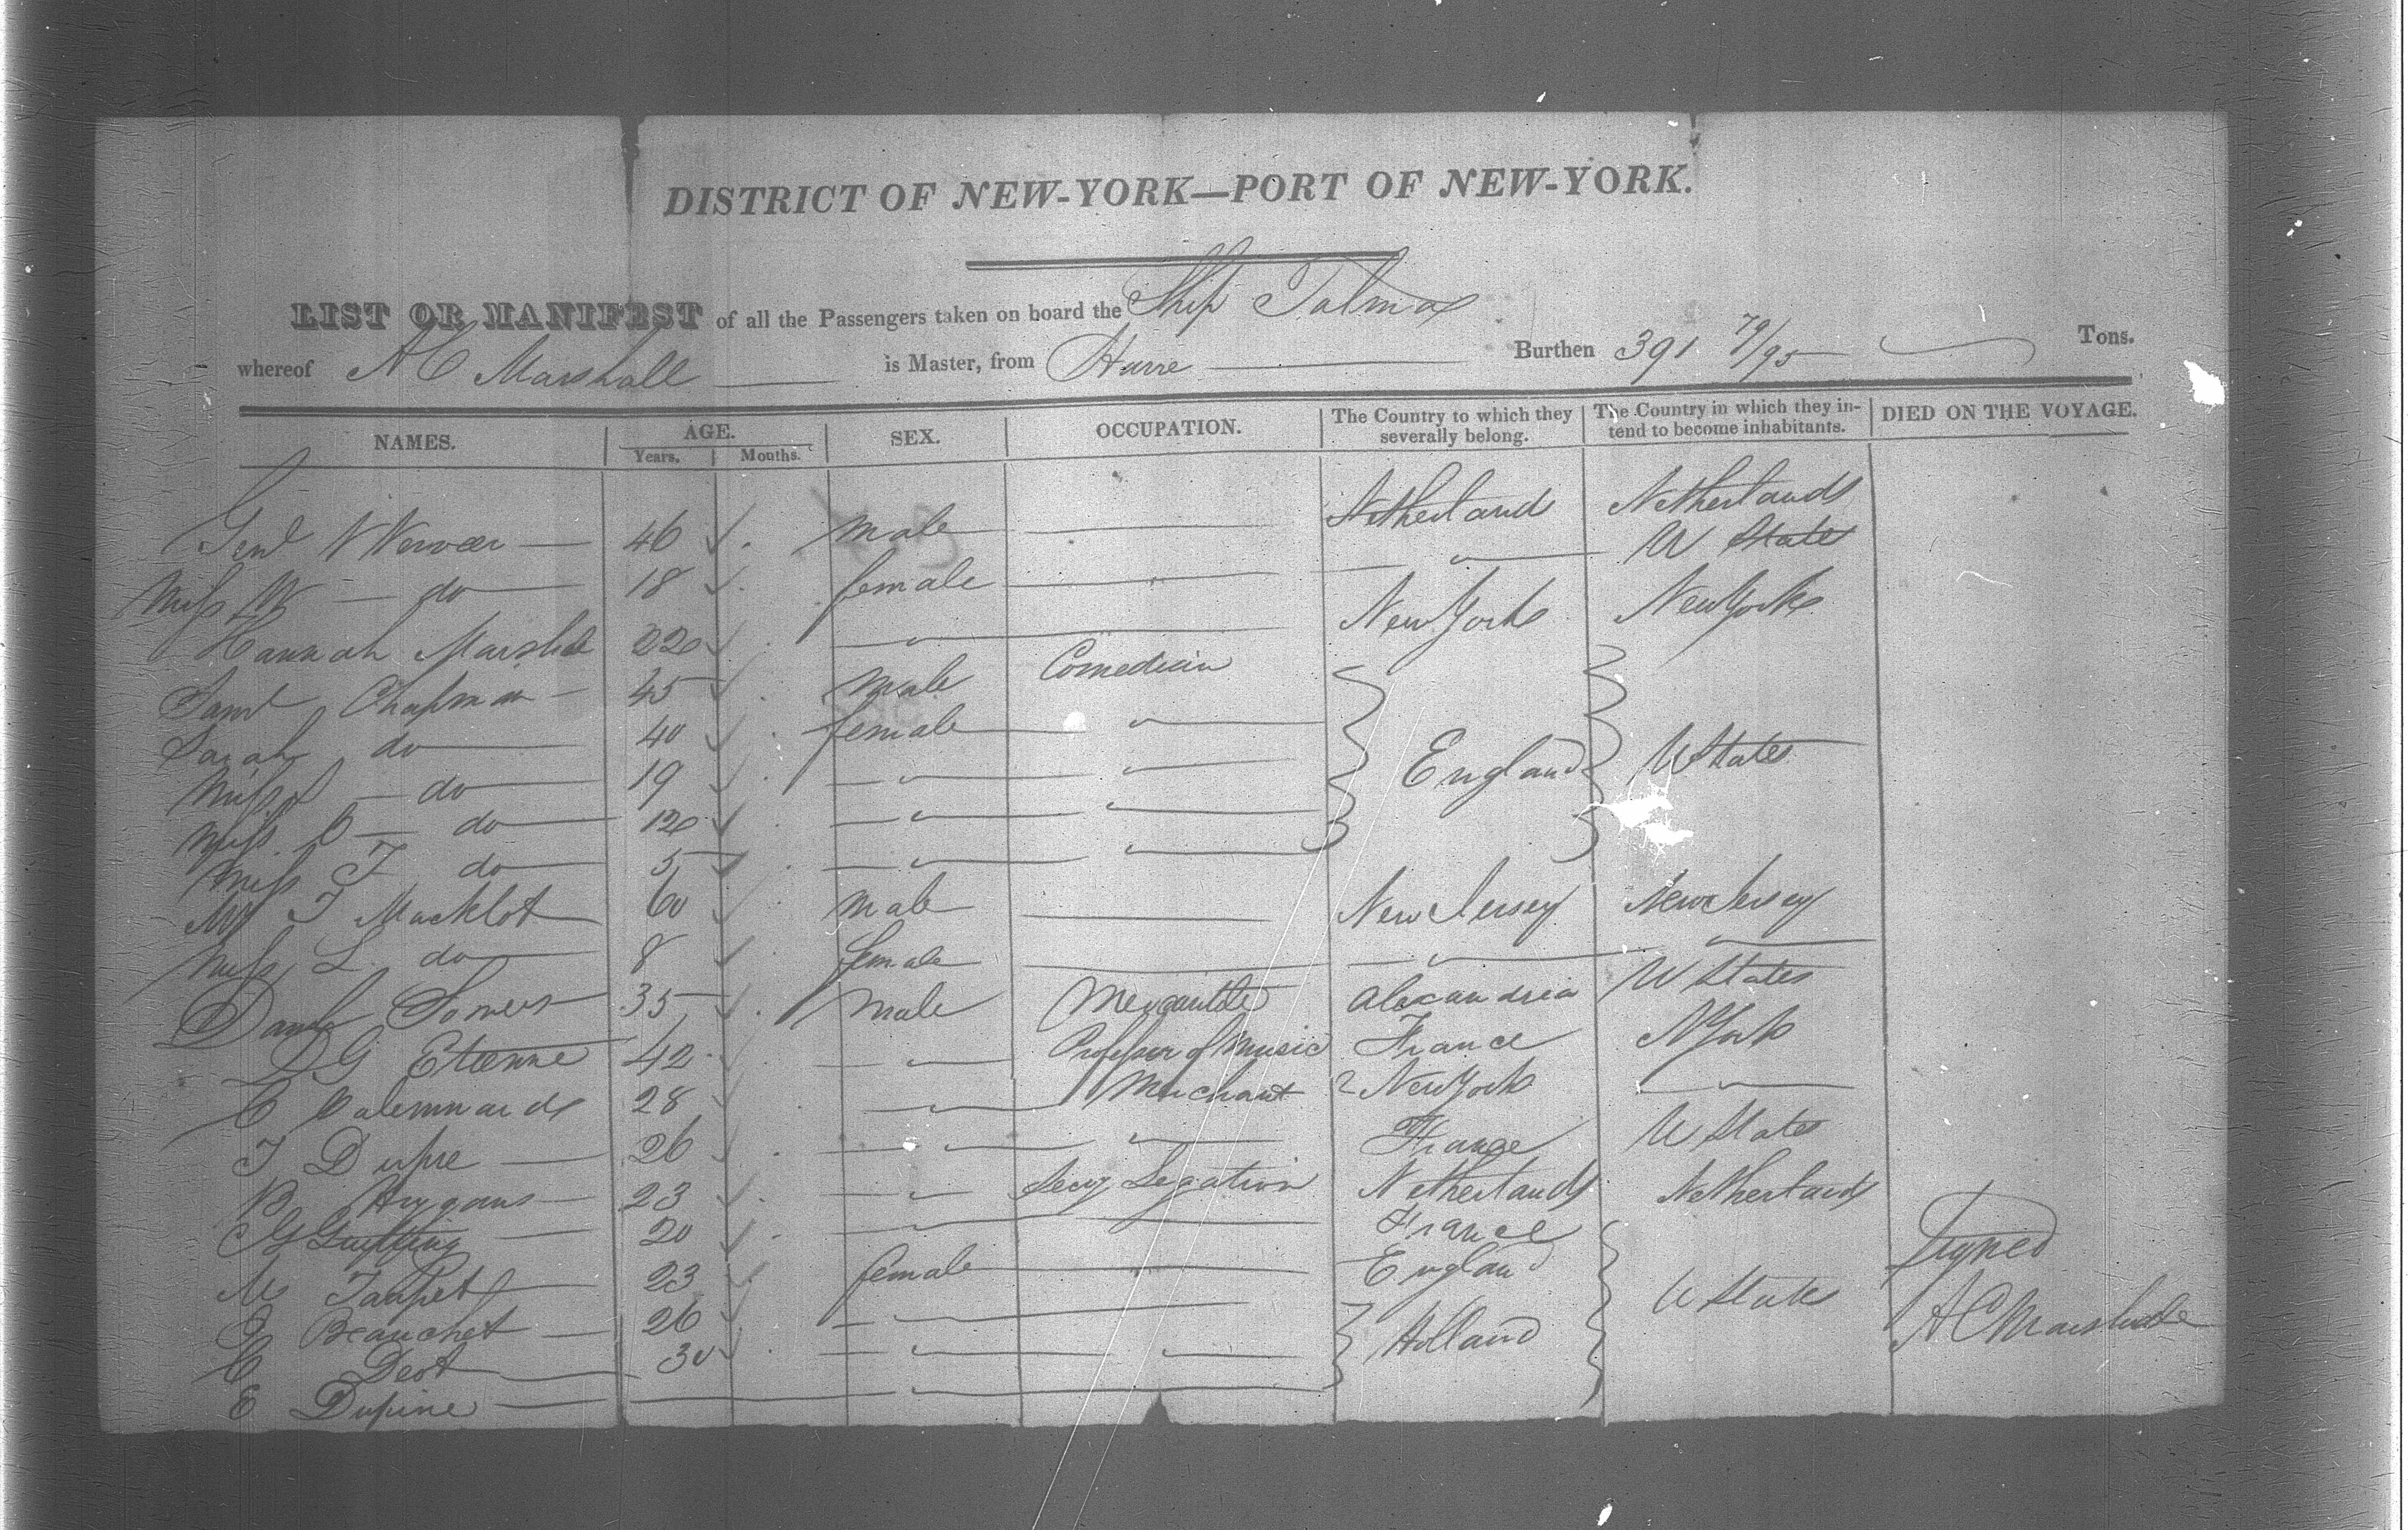 DISTRICT OF NEW-YORK—PORT OF NEW-YORK.
LIST OR MANIFEST of all the Passengers taken on board the Ship Talma
whereof A C Marshall is Master, from Havre Burthen 391 79/95 Tons.
NAMES. AGE. Years. Months. SEX. OCCUPATION. The Country to which they severally belong. The Country in which they intend to become inhabitants. DIED ON THE VOYAGE.
Genl 46 male Netherland Netherlands
Miss do 18 female " U States
Hannah Marshall 22 " New York New York
Saml Chapman 45 male Comedian
Sarah do 40 female "
Miss do 19 " " England U States
Miss do 12 " "
Miss T do 5 " "
Mr T Macklot 60 male New Jersey New Jersey
Miss L do 8 female " "
Danl Somers 35 male Mercantile Alexandria U States
D G Etienne 42 " Professor of Music France N York
C 28 " Merchant New York "
T Dupre 26 " " France U States
B 23 " Secy Legation Netherlands Netherlands
20 " France
M 23 female England
Beauchet 26 " Holland U States
C Deot 30 " "
E Dupine "
Signed
A C Marshall